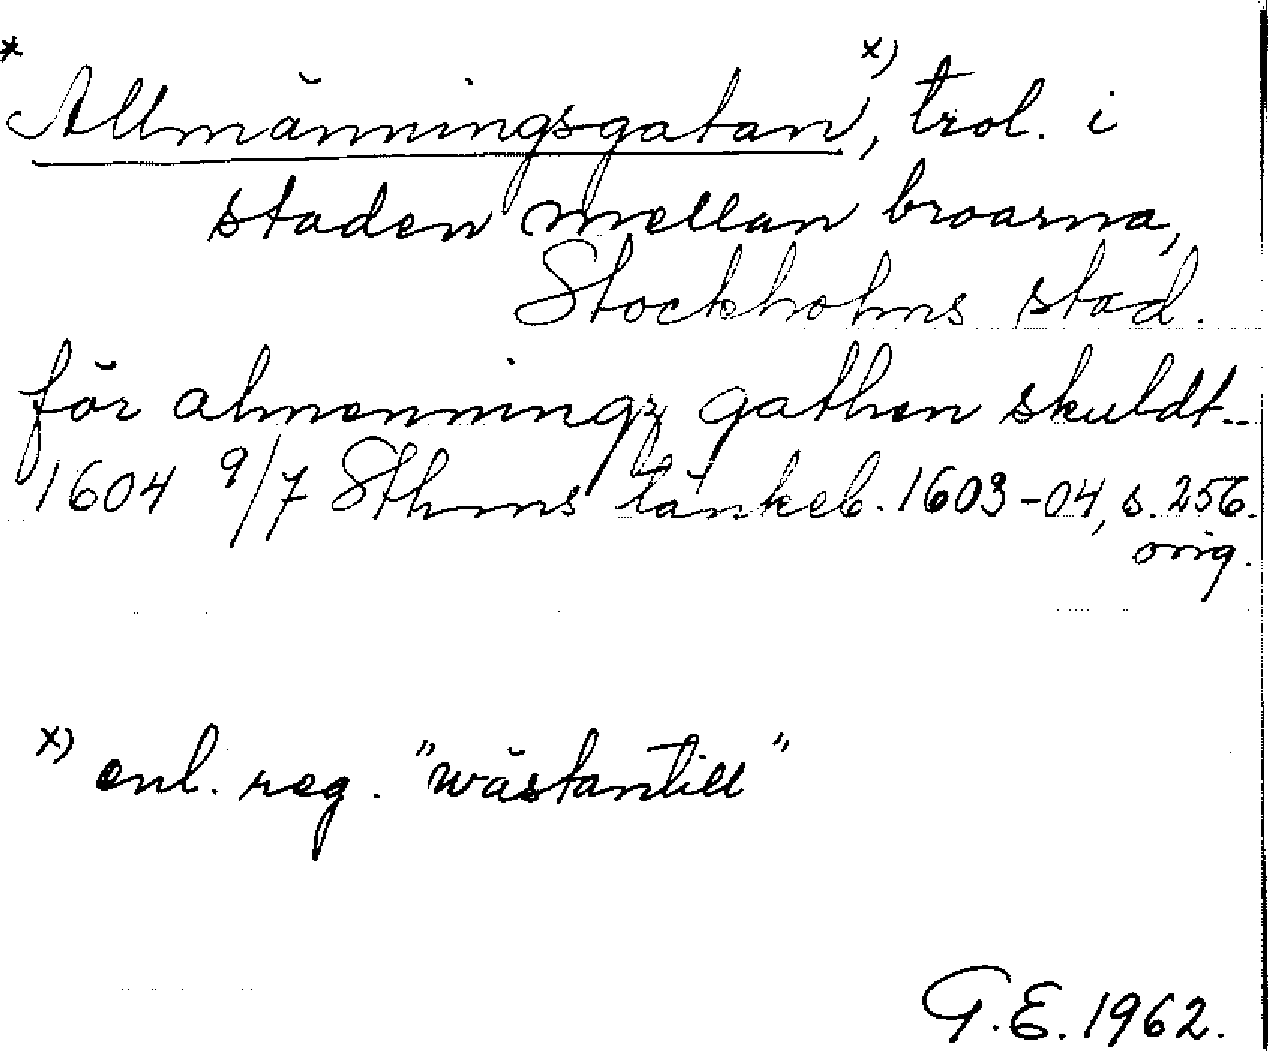 * Allmänningsgatan x), trol. i
staden mellan broarna,
Stockholms stad.
för almenningz gathen skuldt-
1604 9/7 Sthms tänkeb. 1603-04, s. 256.
orig.
x) enl. reg. "wästantill"
G.E. 1962.